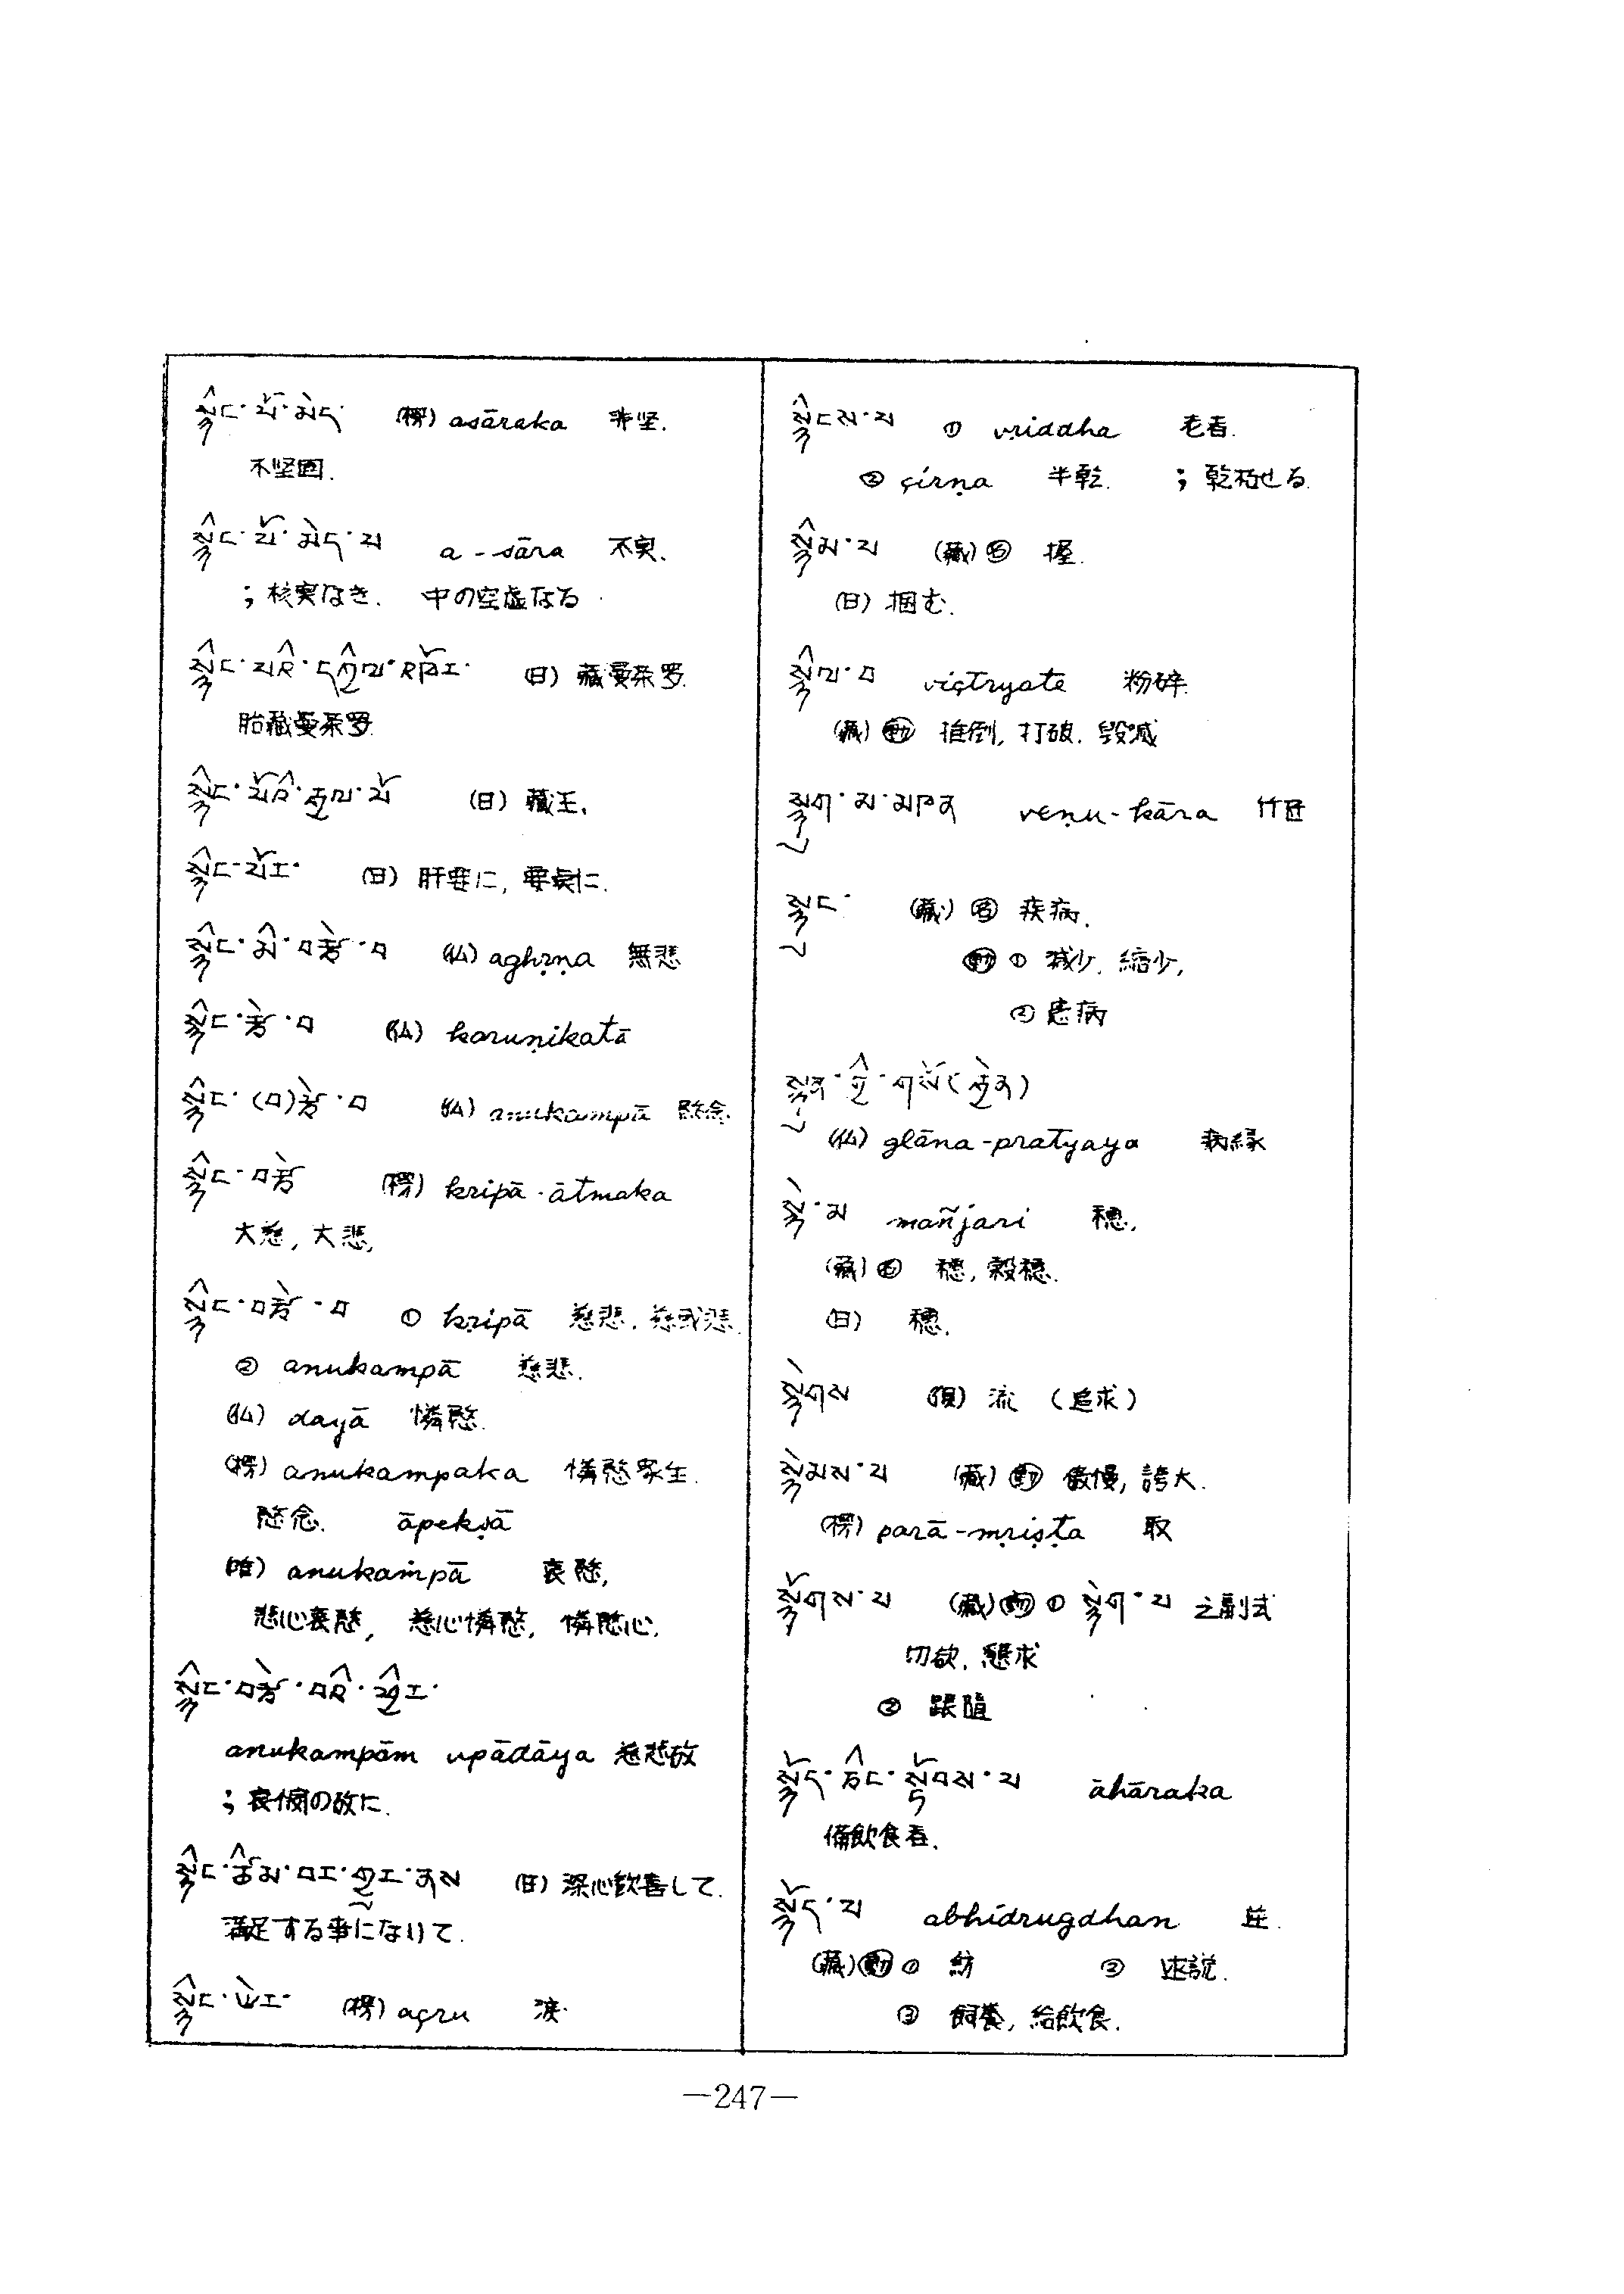 སྙིང་པོ་མེད་ (楞) asāraka 非坚.
不坚固.
སྙིང་པོ་མེད་པ a-sāra 不実.
；核実なき. 中の空虚なる
སྙིང་པའི་དཀྱིལ་འཁོར་ (日) 藏曼荼罗.
胎藏曼荼罗.
སྙིང་པོའི་རྒྱལ་པོ (日) 藏王.
སྙིང་པོར་ (日) 肝要に, 要実に.
སྙིང་མི་བརྩེ་བ (仏) aghṛṇa 無悲
སྙིང་རྩེ་བ (仏) karuṇikatā
སྙིང་(བ)རྩེ་བ (仏) anukampā 愍念.
སྙིང་བརྩེ (楞) kripā-ātmaka
大慈, 大悲,
སྙིང་བརྩེ་བ ① kṛipā 慈悲. 慈或悲.
② anukampā 慈悲.
(仏) dayā 憐愍.
(楞) anukampaka 憐愍衆生.
愍念. āpekṣā
(唯) anukaṁpā 哀愍,
悲心哀愍, 慈心憐愍, 憐愍心.
སྙིང་བརྩེ་བའི་ཕྱིར་
anukampām upādāya 慈悲故
；哀愍の故に.
སྙིང་ཚིམ་པར་གྱུར་ནས (日) 深心歓喜して.
満足する事になりて.
(楞) açru 涙.
སྙིངས་པ ① vṛiddha 老者.
② çirṇa 半乾. ；乾枯せる.
སྙིམ་པ (藏) 名 握.
(日) 掴む.
སྙིལ་བ viçtryate 粉碎.
(藏) 動 推倒, 打破. 毀滅
སྙུག་མ་མཁན veṇu-kāra 竹匠
སྙུང་ (藏) 名 疾病.
動 ① 減少. 縮少,
② 患病
སྙུན་གྱི་གསོ(རྐྱེན)
(仏) glāna-pratyaya 病緣
སྙེ་མ mañjari 穂,
(藏) 名 穂, 穀穂.
(日) 穂.
སྙེགས 流 (追求)
སྙེམས་པ (藏) 動 傲慢, 誇大.
(楞) parā-mṛiṣṭa 取
སྙོགས་པ (藏) 動 ① སྙེག་པ 之副式
切欲. 懇求
② 跟隨
སྙོད་ཅིང་སྟོབས་པ āhāraka
備飲食者.
སྙོད་པ abhidrugdhan
(藏) 動 ① 紡 ② 述説.
③ 飼養, 給飲食.
—247—